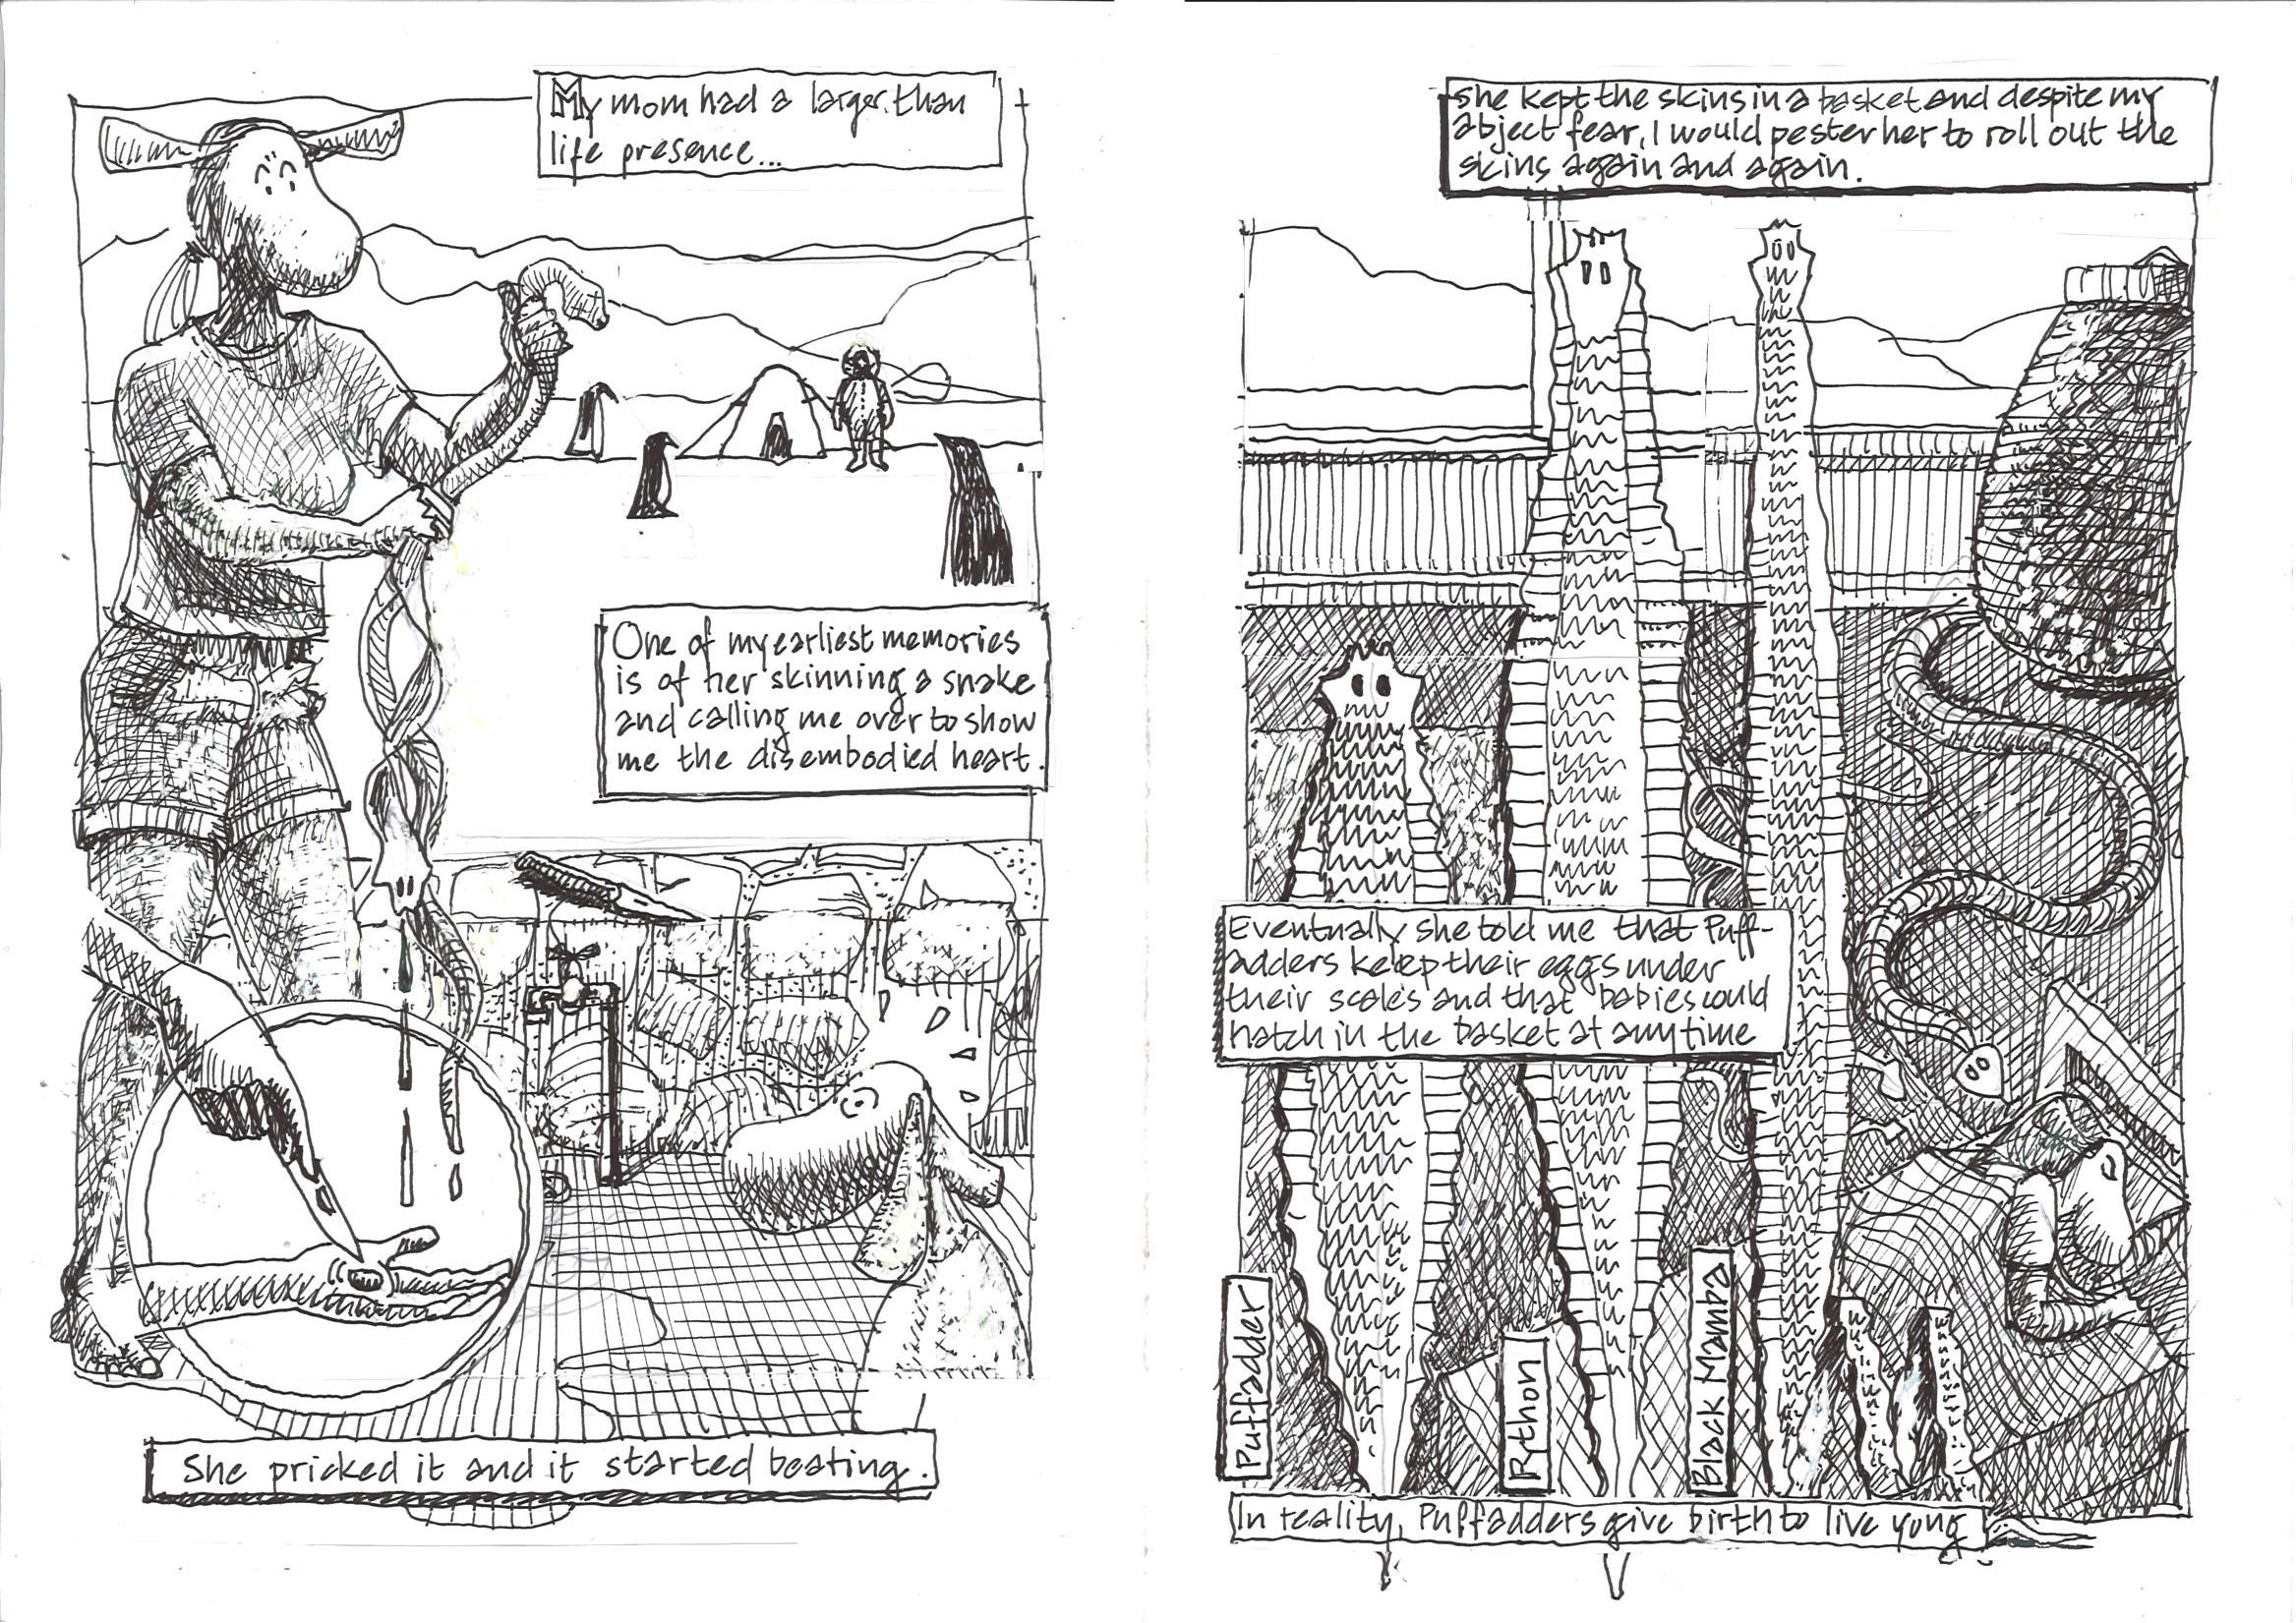 My mom had a larger than
life presence...
One of my earliest memories
is of her skinning a snake
and calling me over to show
me the disembodied heart.
She pricked it and it started beating.
She kept the skins in a basket and despite my
abject fear, I would pester her to roll out the
skins again and again.
Eventually she told me that Puff-
adders keep their eggs under
their scales and that babies could
hatch in the basket at any time
Puffadder
Python
Black Mamba
In reality, Puffadders give birth to live yong